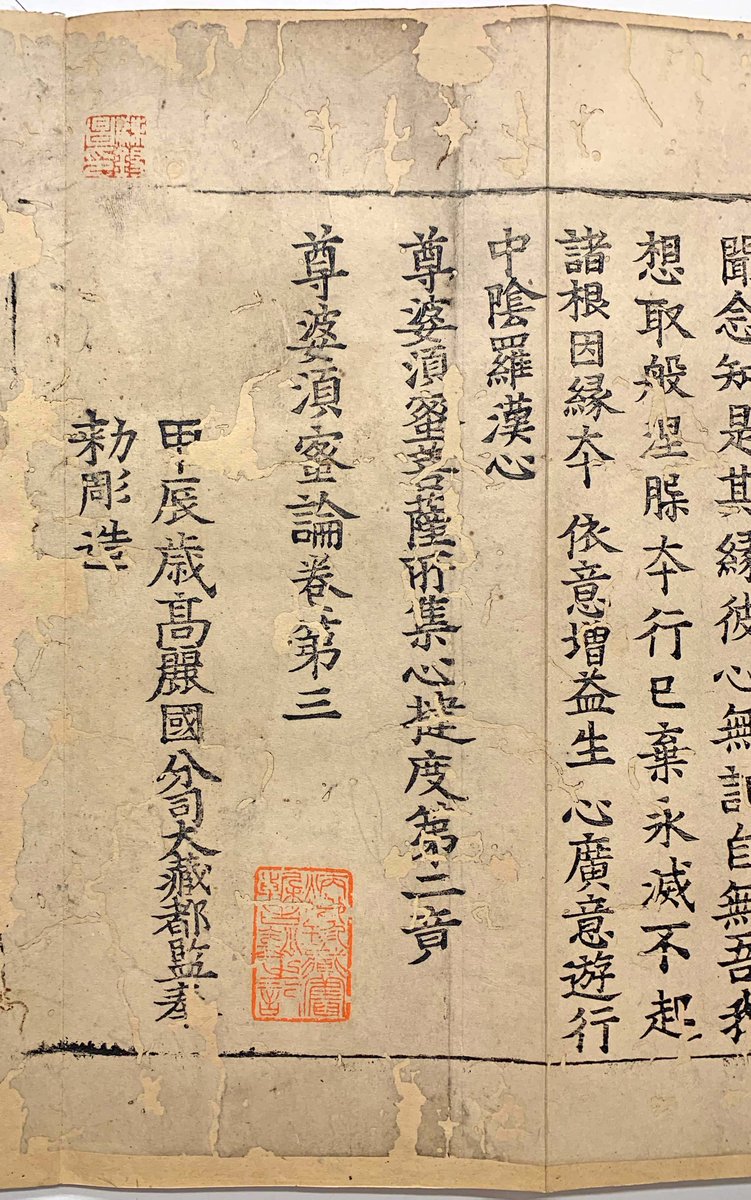 聞念知是其縁彼心無記自無吾我
想取般涅脲夲行已棄永滅不起
諸根因縁夲 依意増益生 心廣意遊行
中陰羅漢心
尊婆須蜜菩薩所集心揵度第三竟
尊婆須蜜論卷第三
甲辰歳髙麗國分司大藏都監奉
勅彫造